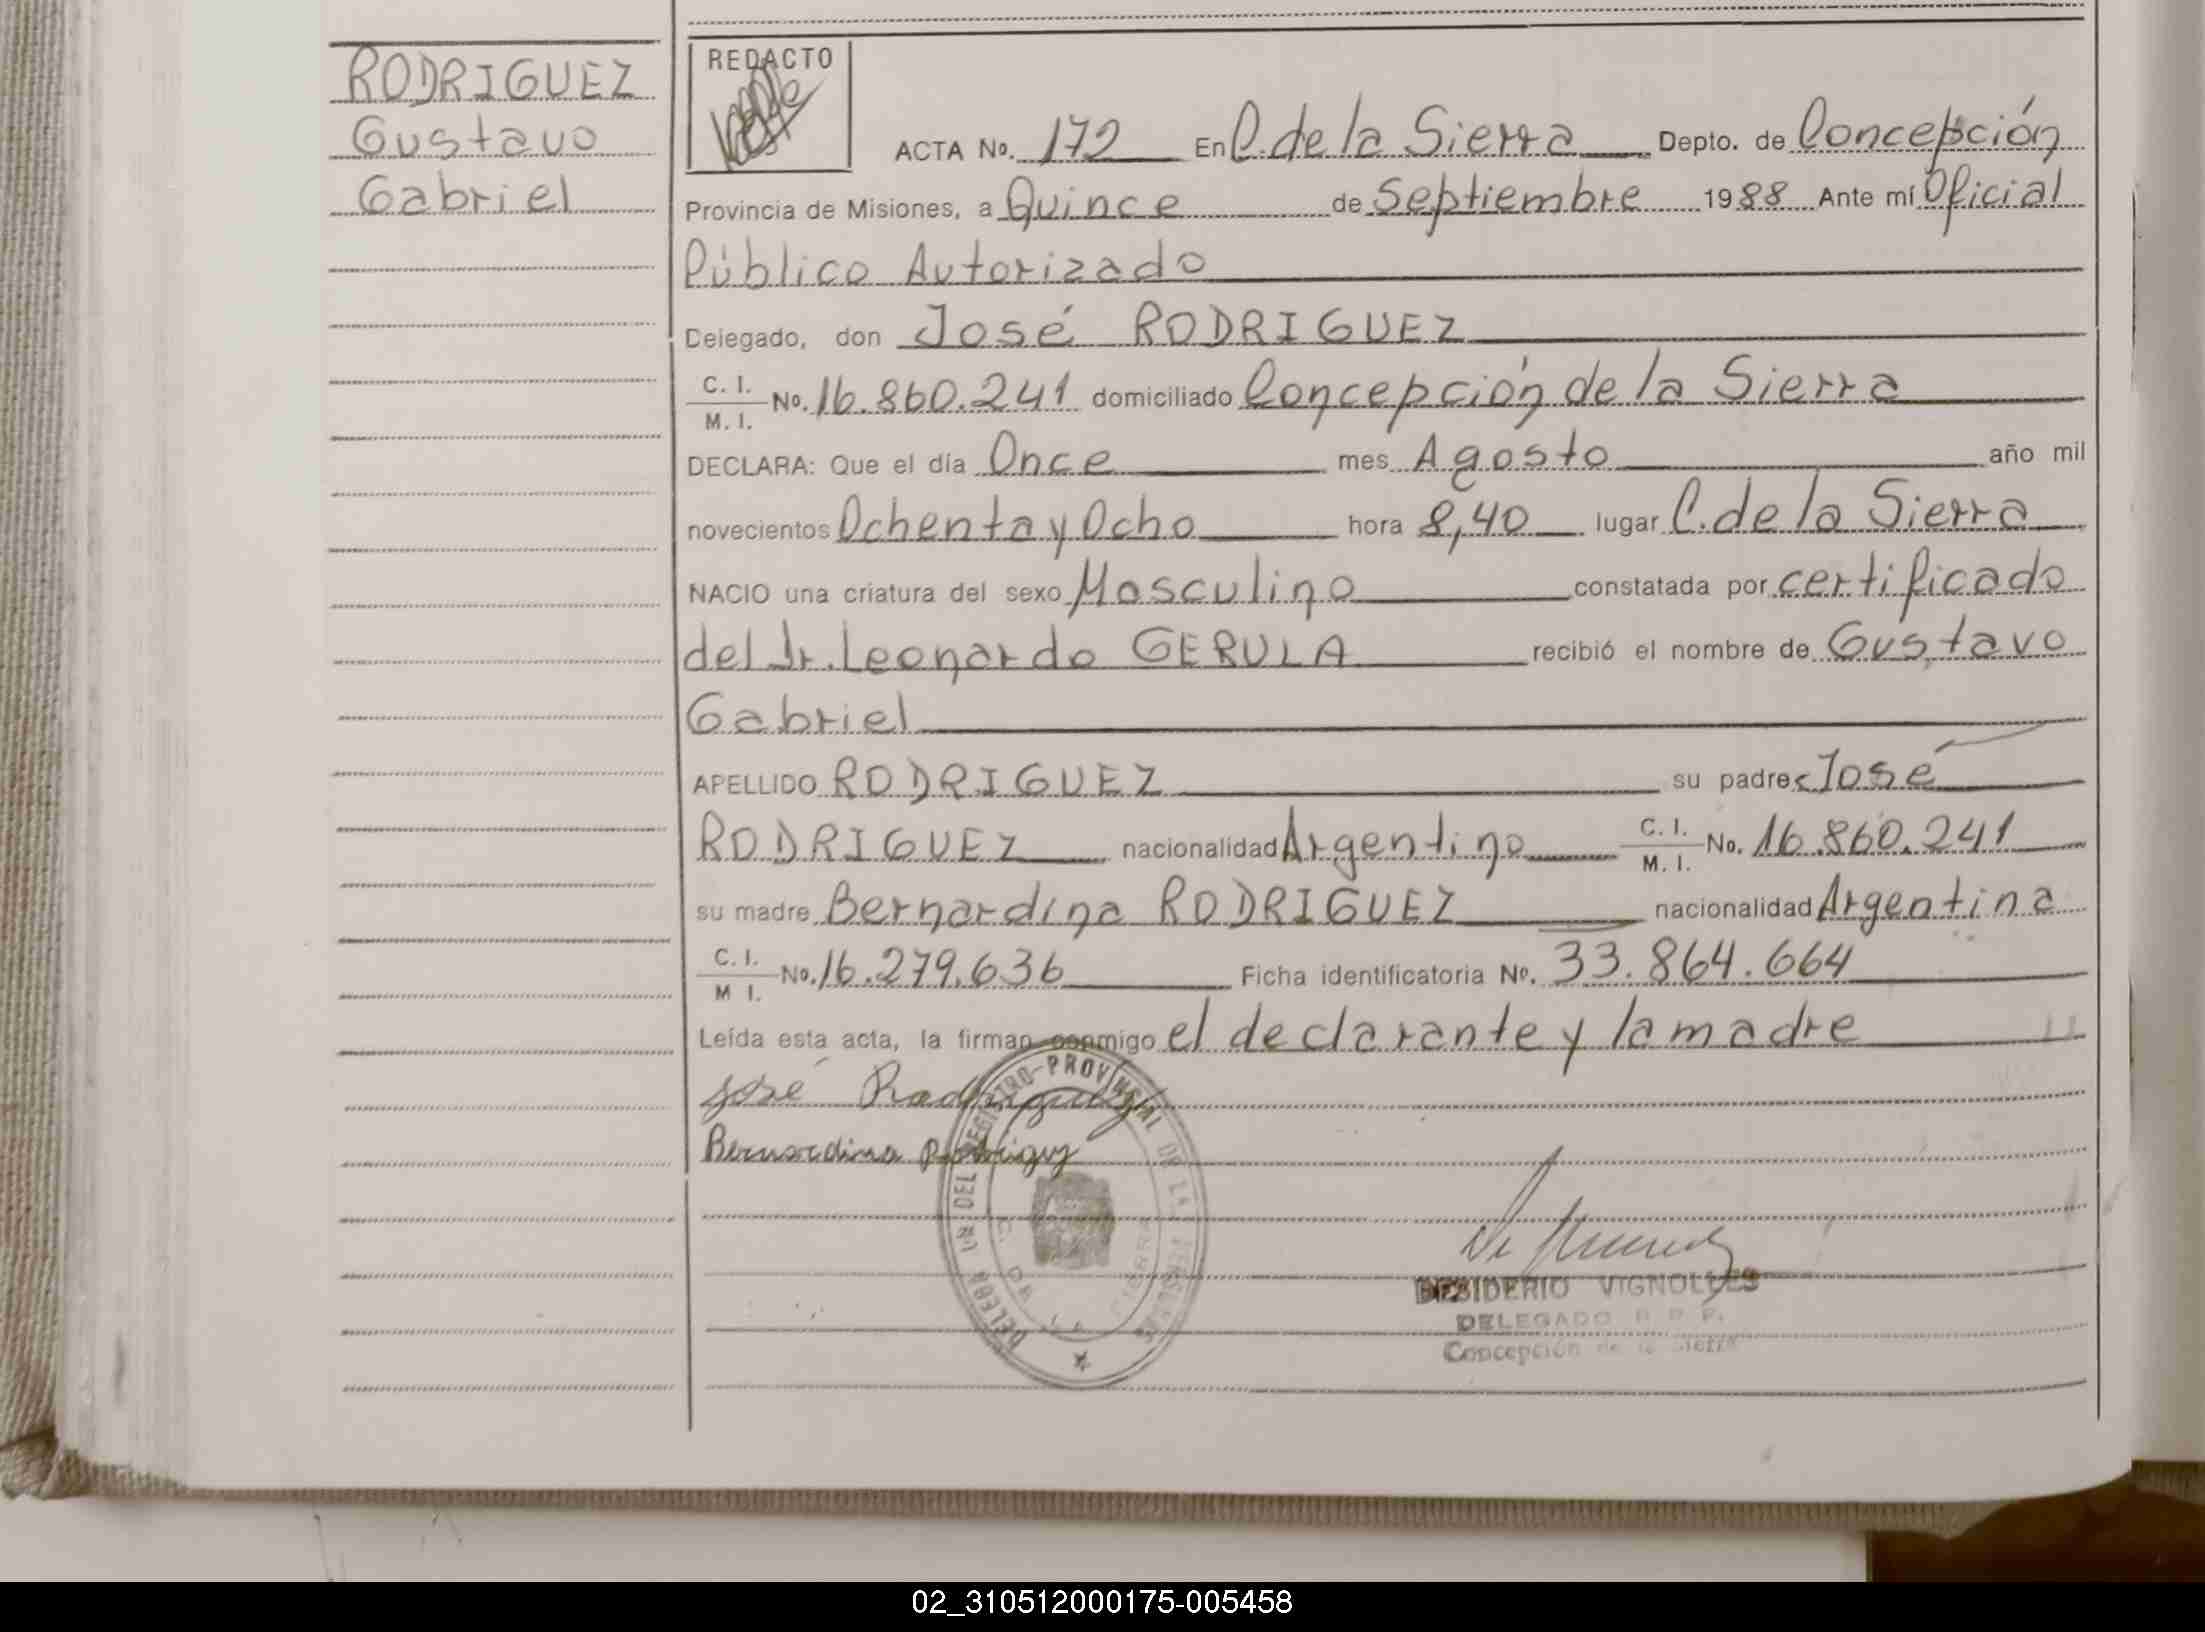 RODRIGUEZ
Gustavo
Gabriel
REDACTO
ACTA No. 172 En C. de la Sierra Depto. de Concepción
Provincia de Misiones, a Quince de Septiembre 1988 Ante mí Oficial
Público Autorizado
Delegado, don José RODRIGUEZ
C. I.
M. I. No. 16.860.241 domiciliado Concepción de la Sierra
DECLARA: Que el día Once mes Agosto año mil
novecientos Ochenta y Ocho hora 8,40 lugar C. de la Sierra
NACIO una criatura del sexo Masculino constatada por certificado
del Dr. Leonardo GERULA recibió el nombre de Gustavo
Gabriel
APELLIDO RODRIGUEZ su padre José
RODRIGUEZ nacionalidad Argentino C. I. M. I. No. 16.860.241
su madre Bernardina RODRIGUEZ nacionalidad Argentina
C. I. M I. No. 16.279.636 Ficha identificatoria No. 33.864.664
Leída esta acta, la firman conmigo el declarante y la madre
José Rodriguez
Bernardina Rodriguez
DELEGN DEL REGISTRO PROVINCIAL DE LA
C. DE LA SIERRA
DESIDERIO VIGNOLLES
DELEGADO R. P. P.
Concepción de la Sierra
02_310512000175-005458